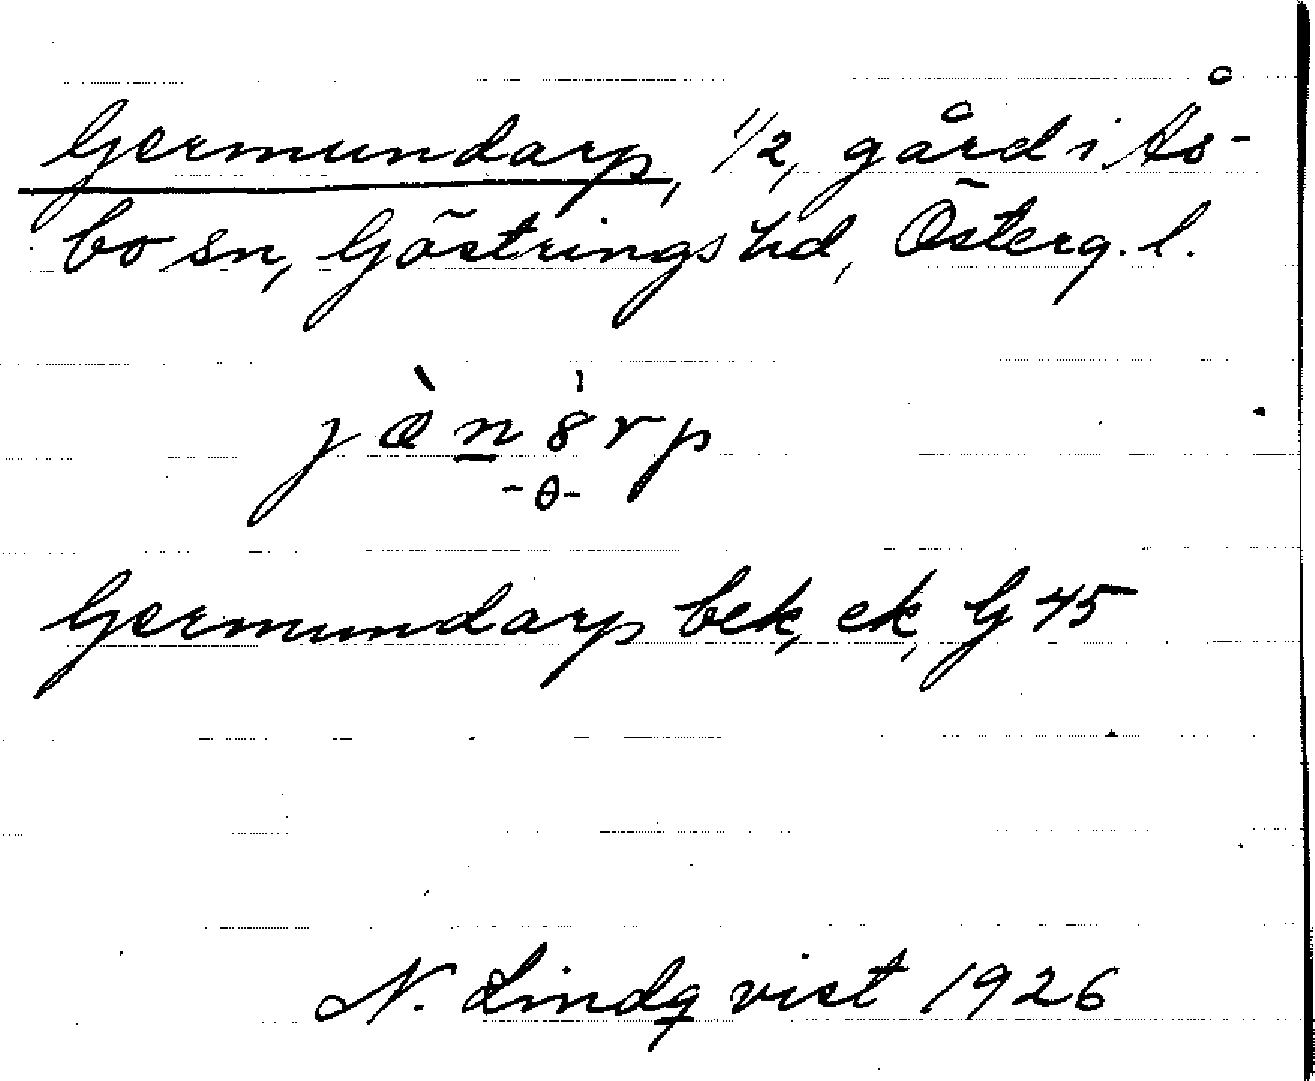 Germundarp, 1/2, gård i Ås-
bo sn, Göstrings hd, Österg. l.
Germundarp bek, ek, G 45
N. Lindqvist 1926